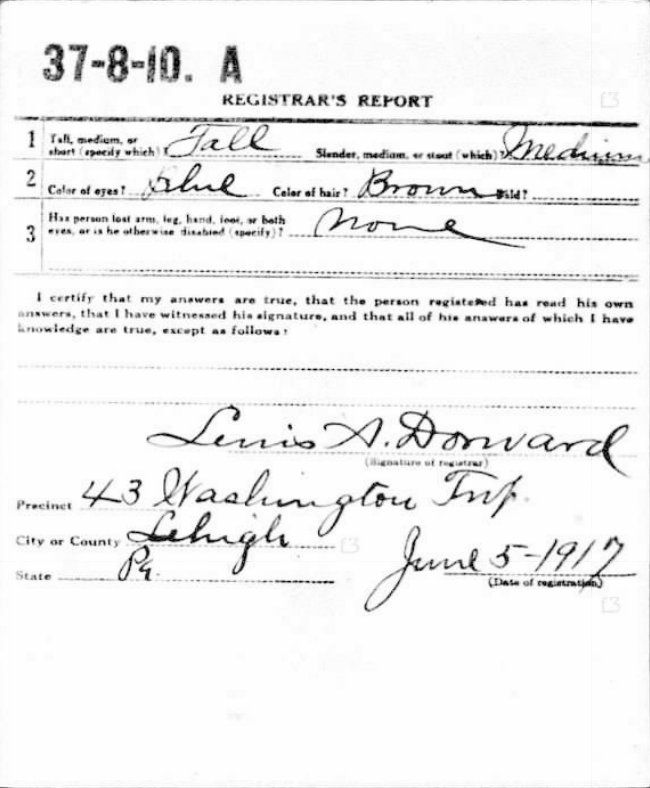 37-8-10. A
REGISTRAR'S REPORT
1 Tall, medium, or short (specify which)? Tall Slender, medium, or stout (which)? Medium
2 Color of eyes? Blue Color of hair? Brown Bald?
3 Has person lost arm, leg, hand, foot, or both eyes, or is he otherwise disabled (specify)? None
I certify that my answers are true, that the person registered has read his own
answers, that I have witnessed his signature, and that all of his answers of which I have
knowledge are true, except as follows:
Lewis A. Dorward
(Signature of registrar)
Precinct 43 Washington Twp.
City or County Lehigh
State Pa. June 5-1917
(Date of registration)